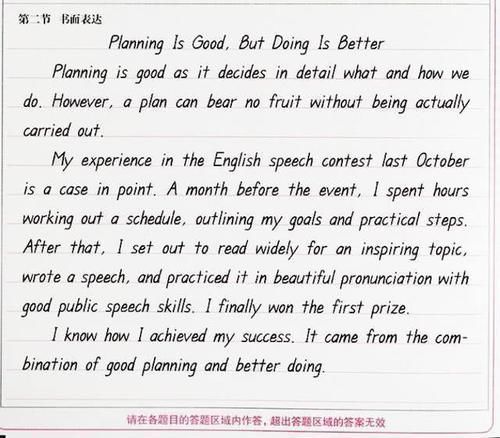 第二节 书面表达
Planning Is Good, But Doing Is Better
Planning is good as it decides in detail what and how we
do. However, a plan can bear no fruit without being actually
carried out.
My experience in the English speech contest last October
is a case in point. A month before the event, I spent hours
working out a schedule, outlining my goals and practical steps.
After that, I set out to read widely for an inspiring topic,
wrote a speech, and practiced it in beautiful pronunciation with
good public speech skills. I finally won the first prize.
I know how I achieved my success. It came from the com-
bination of good planning and better doing.
请在各题目的答题区域内作答，超出答题区域的答案无效